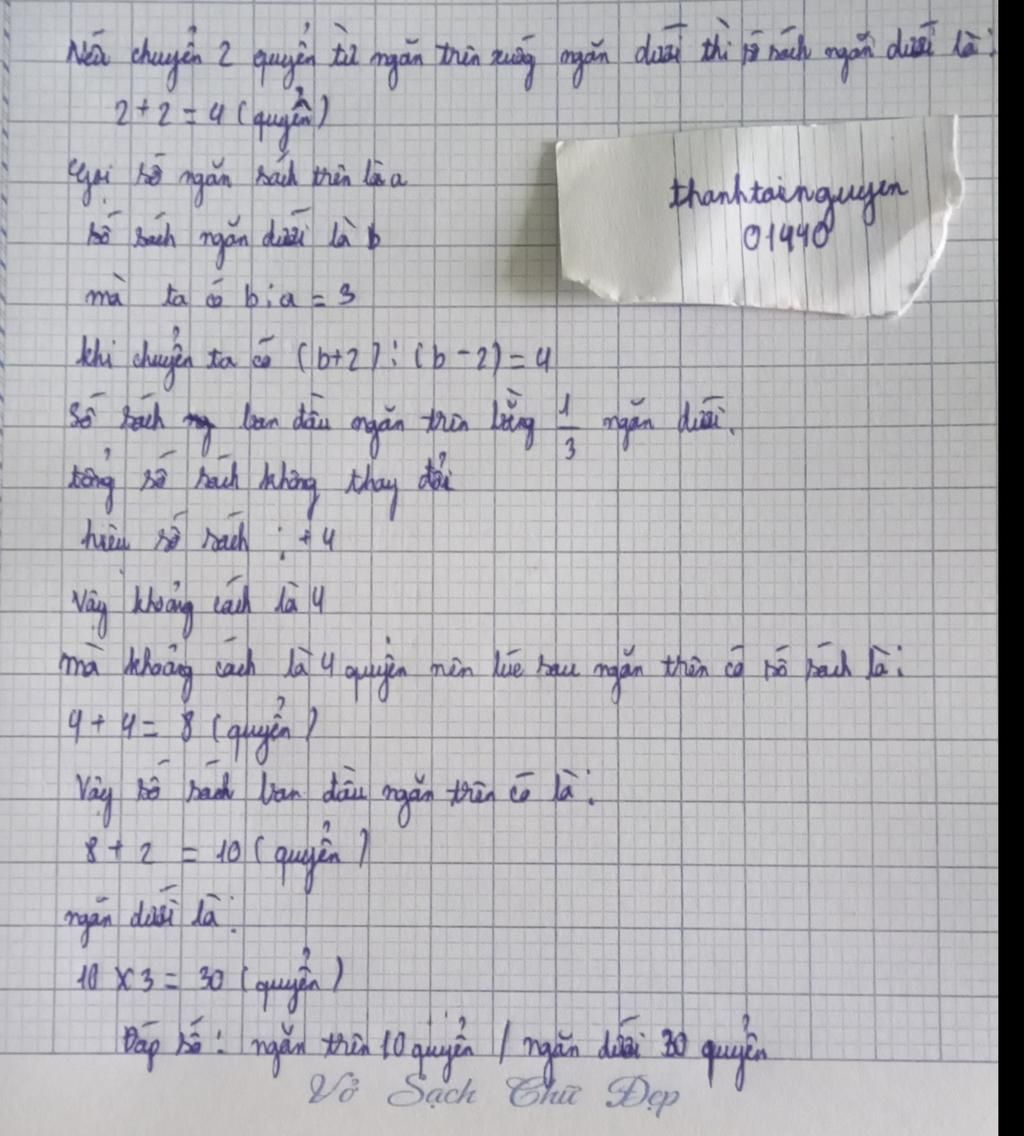 Nếu chuyển 2 quyển từ ngăn trên xuống ngăn dưới thì số sách ngăn dưới là:
2 + 2 = 4 (quyển)
thanhtainguyen
01440
Gọi số ngăn sách trên là a
số sách ngăn dưới là b
mà ta có b : a = 3
khi chuyển ta có (b+2) : (b-2) = 4
Số sách ban đầu ngăn trên bằng 1/3 ngăn dưới.
tổng số sách không thay đổi
hiệu số sách : + 4
Vậy khoảng cách là 4
mà khoảng cách là 4 quyển nên lúc sau ngăn trên có số sách là:
4 + 4 = 8 (quyển)
Vậy số sách ban đầu ngăn trên có là:
8 + 2 = 10 (quyển)
ngăn dưới là:
10 x 3 = 30 (quyển)
Đáp số: ngăn trên 10 quyển / ngăn dưới 30 quyển
Vở Sạch Chữ Đẹp